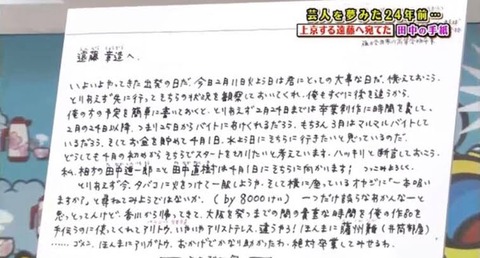 芸人を夢みた24年前…
上京する遠藤へ宛てた 田中の手紙
遠藤 章造へ.
いよいよやってきた出発の日だ。今日2月11日火よう日は君にとっての大事な日だ。憶えておこう。
とりあえず先に行ってそちらの状況を観察しておいてくれ。俺もすぐに後を追うから。
俺の方の予定を簡単に書いておくと、とりあえず2月24日までは卒業創作に時間を費して、
2月の24日以降、つまり25日からバイトにあけくれるだろう。もちろん3月はマルマルバイトして
いるだろう、そしてお金を貯めて4月1日、水よう日にそちらに行きたいと思っているのだ。
どうしても4月の初めからそちらでスタートをきりたいと考えています。ハッキリと断言しておこう。
私、相方の田中進一郎こと田中直樹は4月1日にそちらに向かいます!
とりあえず今、タバコに火をつけて一服しようか。そして横に座っているオヤジに「一本吸い
ますか?」と尋ねてみようではないか。(by 8000けい) 一つだけ語らなあかんなーと
思っとってんけど、香川から帰ってきて、大阪を発つまでの間の貴重な時間を俺の作品を
手伝うのに使ってくれてアリトウ、いやいやアリストテレス、違うやろ!ほんまに薩州鶏(井筒部屋)
……ゴメン、ほんまにアリガトウ。おかげでかなり助かったわ。絶対卒業してみせるわ。